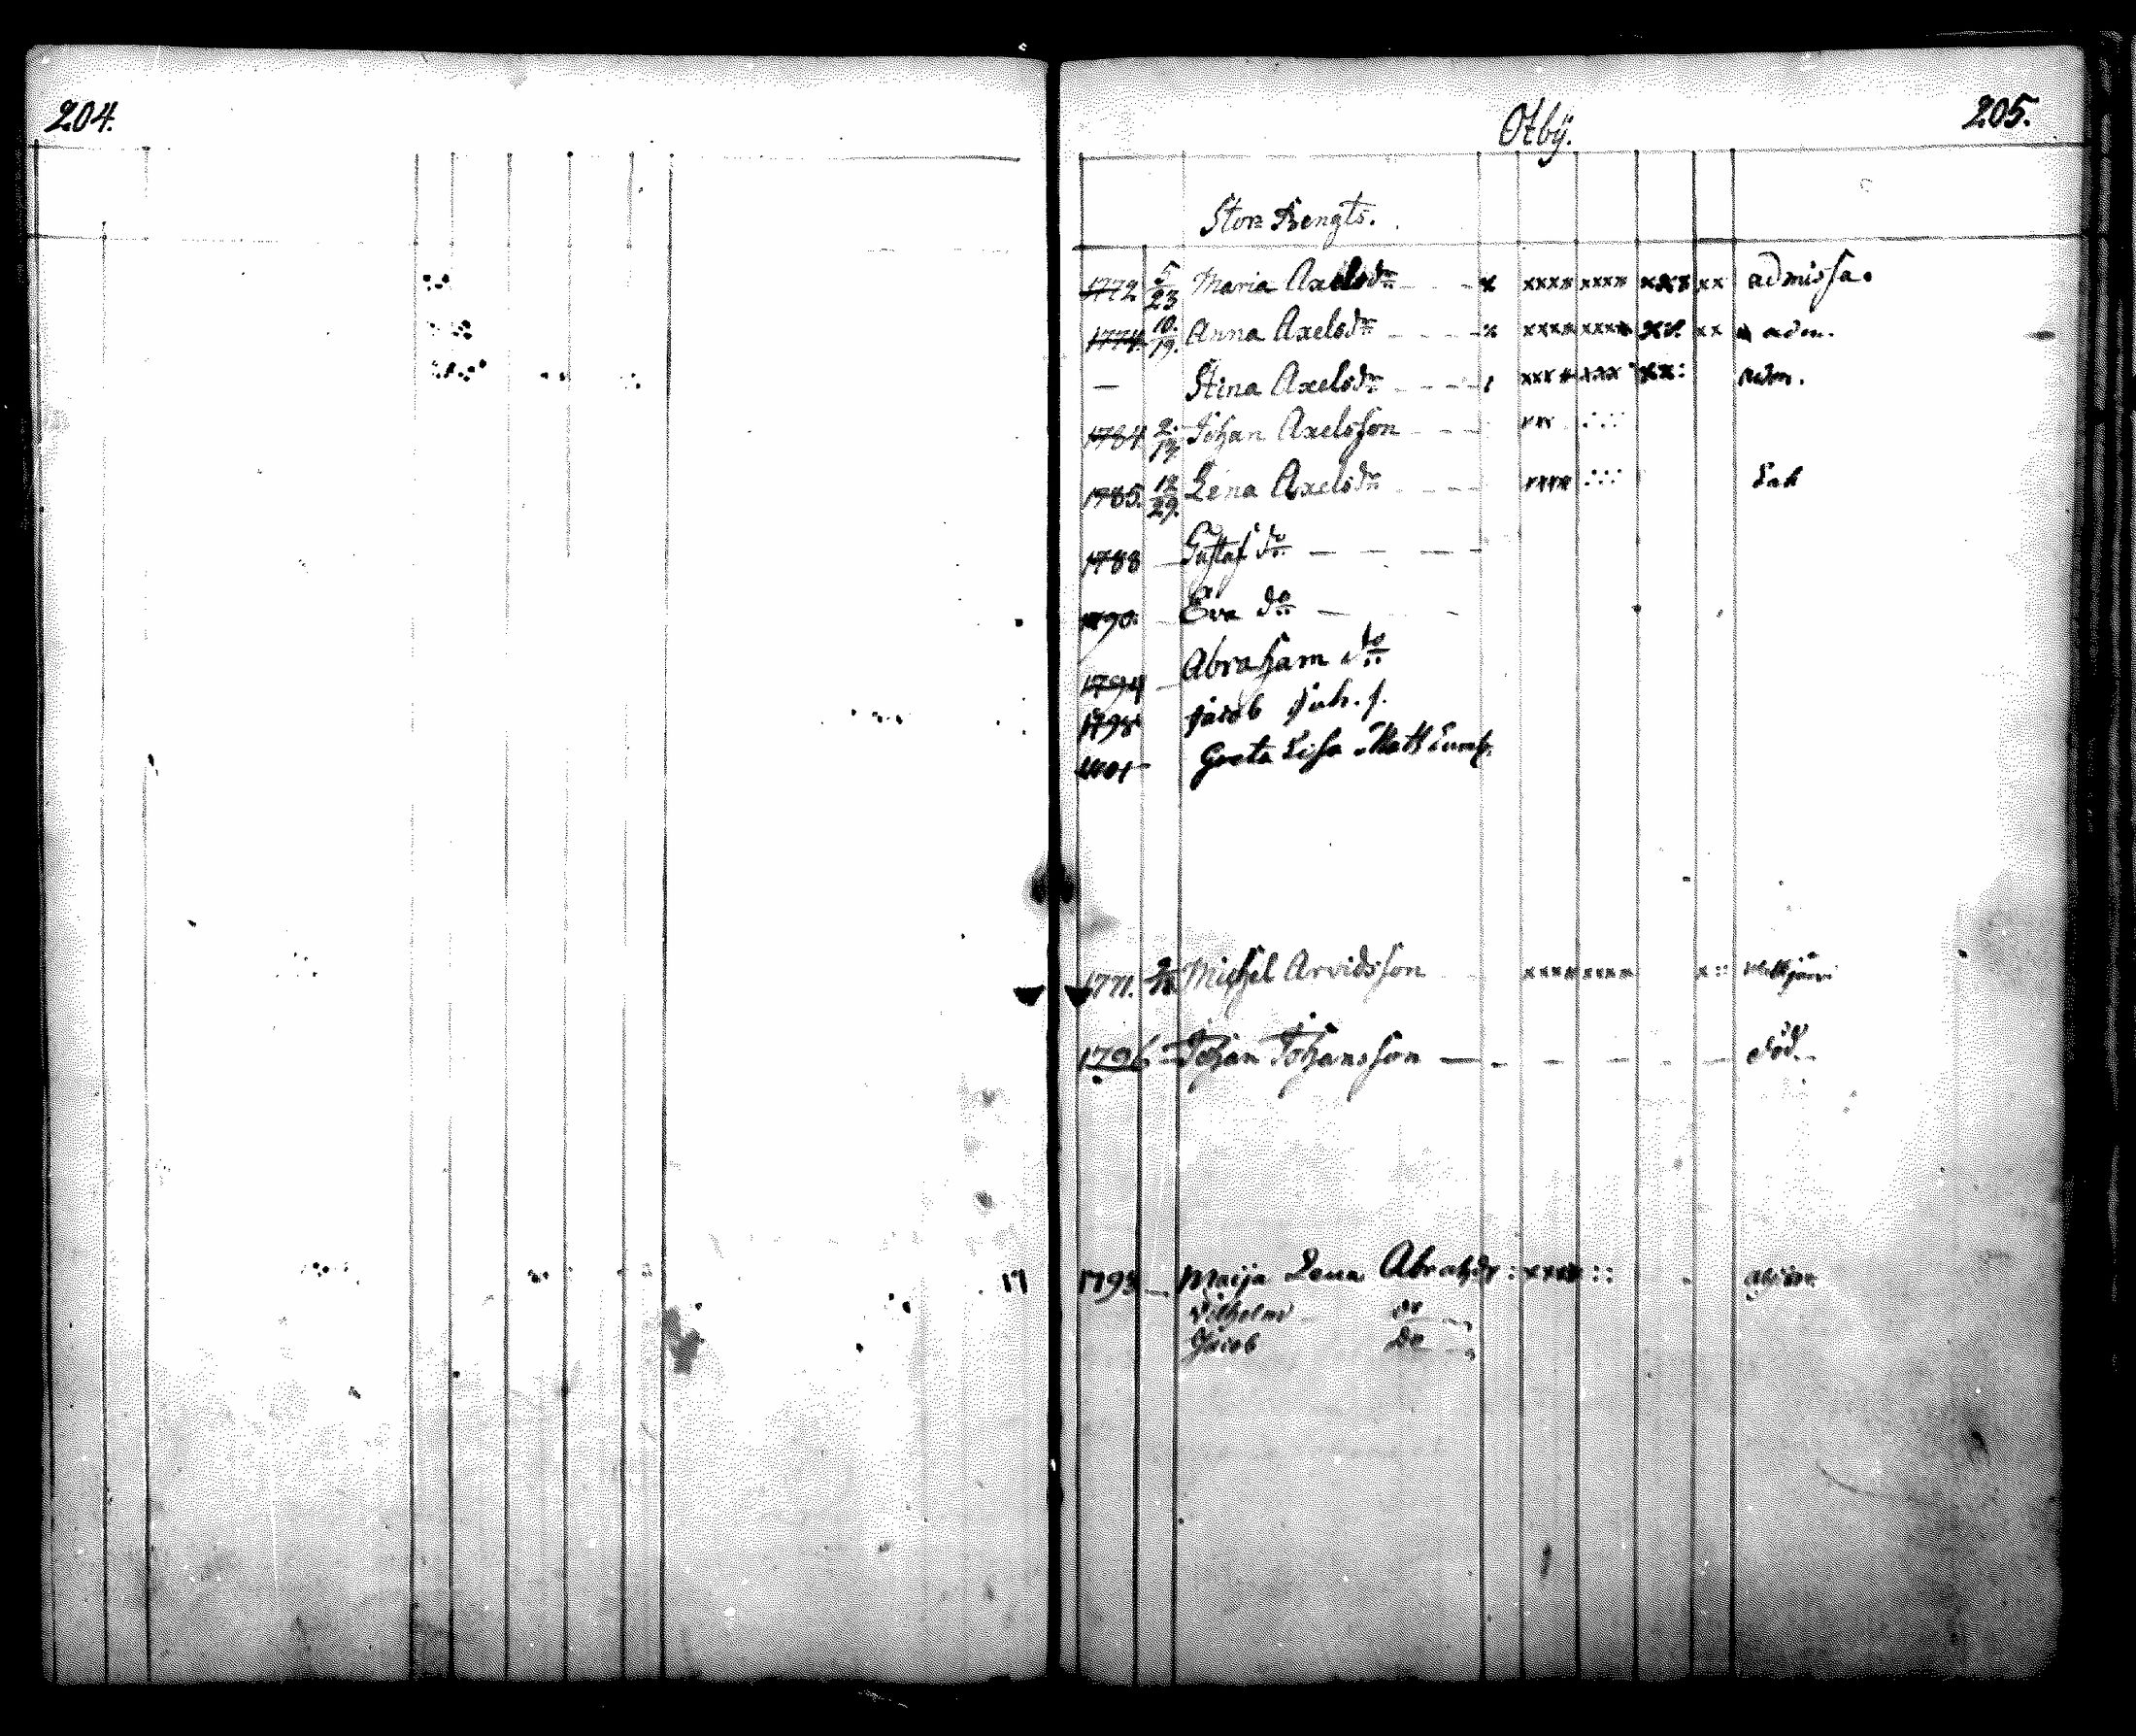 204.
Otbÿ. 205.
Stor Bengts.
1772 5/23 Maria Axelsdr x xxxx xxxx xxx xx admissa.
1774. 10./19. Anna Axelsdr x xxxx xxxx xx xx adm.
— Stina Axelsdr xxxx xxx xx: adm.
1784 2./13. Johan Axelsson xxx
1785. 12/29. Lena Axelsdr xxxx
1788 — Gustaf do
1790. Eva do
1794 — Abraham do
1798 Jacob Joh. s.
Greta Lisa Matt
1771. Michel Arvidsson xxxx xxxx x::
1796 Johan Johansson — död.
17 1793 — Maija Lena Abrahdr : xxxx ::
Vilhelm do
Jacob do